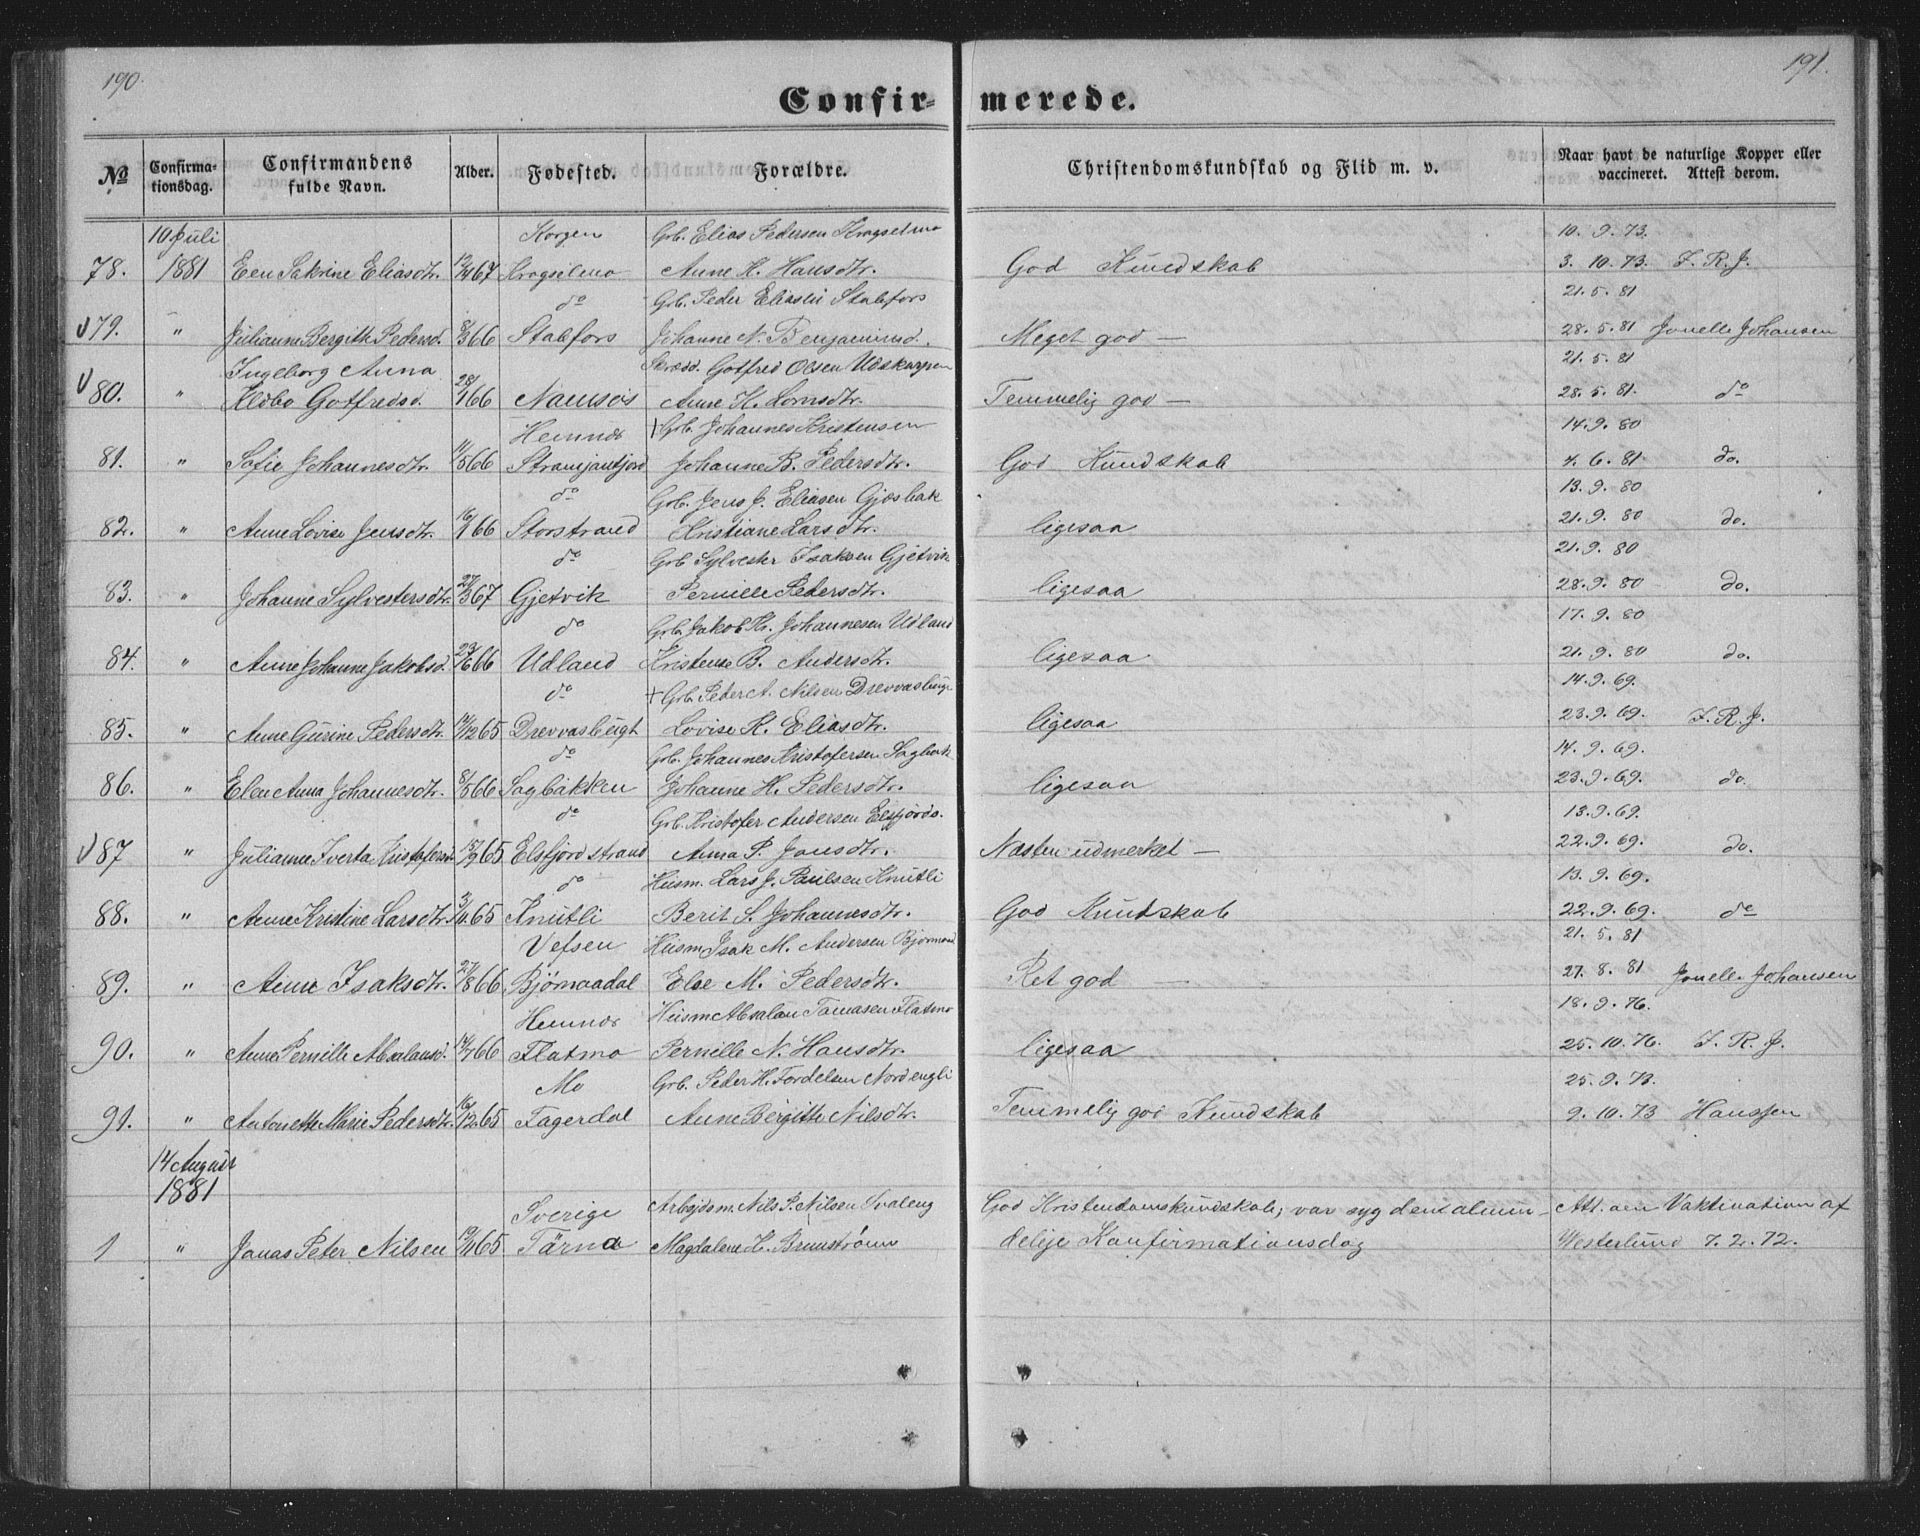 190.
191.
Confir-
merede.
No
Confirma-
tionsdag.
Confirmandens
fulde Navn.
Alder.
Fødested.
Forældre.
Christendomskundskab og Flid m. v.
Naar havt de naturlige Kopper eller
vaccineret. Attest derom.
10 Juli Korgen Grb. Elias Pedersen 10. 9. 73.
78. 1881 Sakrine Eliasdtr. 67 Anne H. Hansdtr. God Kundskab 3. 10. 73. J. R. J.
do Grb. Peder Eliasen Stabfors 21. 5. 81
79. " Julianne Bergitte Pedersd. 8/3 66 Stabfors Johanne N. Benjamind. Meget god — 28. 5. 81 Jonelle Johansen
Ingeborg Anna Skræd. Gotfred Olsen Udskarpen 21. 5. 81
80. " Gotfredsd. 28/1 66 Namsos Anne H. Lornsdtr. Temmelig god — 28. 5. 81. do
Hemnes + Grb. Johannes Kristensen 14. 9. 80
81. " Sofie Johannesdtr. 5 66 Johanne B. Pedersdtr. God Kundskab 4. 6. 81 do.
do Grb. Jens J. Eliasen Gjesbak 13. 9. 80
82. " Anne Lovise Jensdtr. 16/1 66 Storstrand Kristiane Larsdtr. ligesaa 21. 9. 80 do.
do Grb. Sylvester Isaksen Gjetvik 21. 9. 80
83. " Johanne Sylvestersdtr. 27/3 67 Gjetvik Pernille Pedersdtr. ligesaa 28. 9. 80 do.
do Grb. Jakob H. Johannesen Udland 17. 9. 80
84. " Anne Johanne Jakobsd. 23/6 66 Udland Kristense B. Andersdtr. ligesaa 21. 9. 80 do.
do + Grb. Peder A. Nilsen Drevvasbugt 14. 9. 69.
85. " Anne Gurine Pedersdtr. 14/12 65 Drevvasbugt Lovise K. Eliasdtr. ligesaa 23. 9. 69. J. R. J.
do Grb. Johannes Kristofersen Sagbak 14. 9. 69.
86. " Elen Anna Johannesdtr. 8/5 66 Sagbakken Johanne H. Pedersdtr. ligesaa 23. 9. 69. do.
do Grb. Kristofer Andersen Elsfjords. 13. 9. 69.
87 " Julianne Iverta Kristofersd. 9 65 Elsfjordstrand Anna P. Jonsdtr. Næsten udmerket — 22. 9. 69. do.
do Husm. Lars J. Paulsen Knutli 13. 9. 69.
88. " Anne Kristine Larsdtr. 65 Knutli Berit S. Johannesdtr. God Kundskab 22. 9. 69. do
Vefsen Husm Isak M. Andersen 21. 5. 81
89. " Anne Isaksdtr. 27/8 66 Bjørnaadal Else M. Pedersdtr. Ret god — 27. 8. 81 Jonelle Johansen
Hemnes Husm Absalon Tomasen Flatmo 18. 9. 76.
90. " Anne Pernille Absalonsd. 14/7 66 Flatmo Pernille N. Hansdtr. ligesaa 25. 10. 76. J. R. J.
Mo Grb. Peder H. Fordelsen Nordengli 25. 9. 73.
91. " Antonette Marie Pedersdtr. 16/12 65 Fagerdal Anne Bergitte Nilsdtr. Temmelig god Kundskab 9. 10. 73 Hanssen
14 August
1881
Sverige Arbejdsm. Nils P. Nilsen God Kristendomskundskab; var syg den almin- Att. om Vaktination af
1 " Jonas Peter Nilsen 65 Tärna Magdalene K. Brunstrøm delige Konfirmationsdag Westerlund 7. 2. 72.